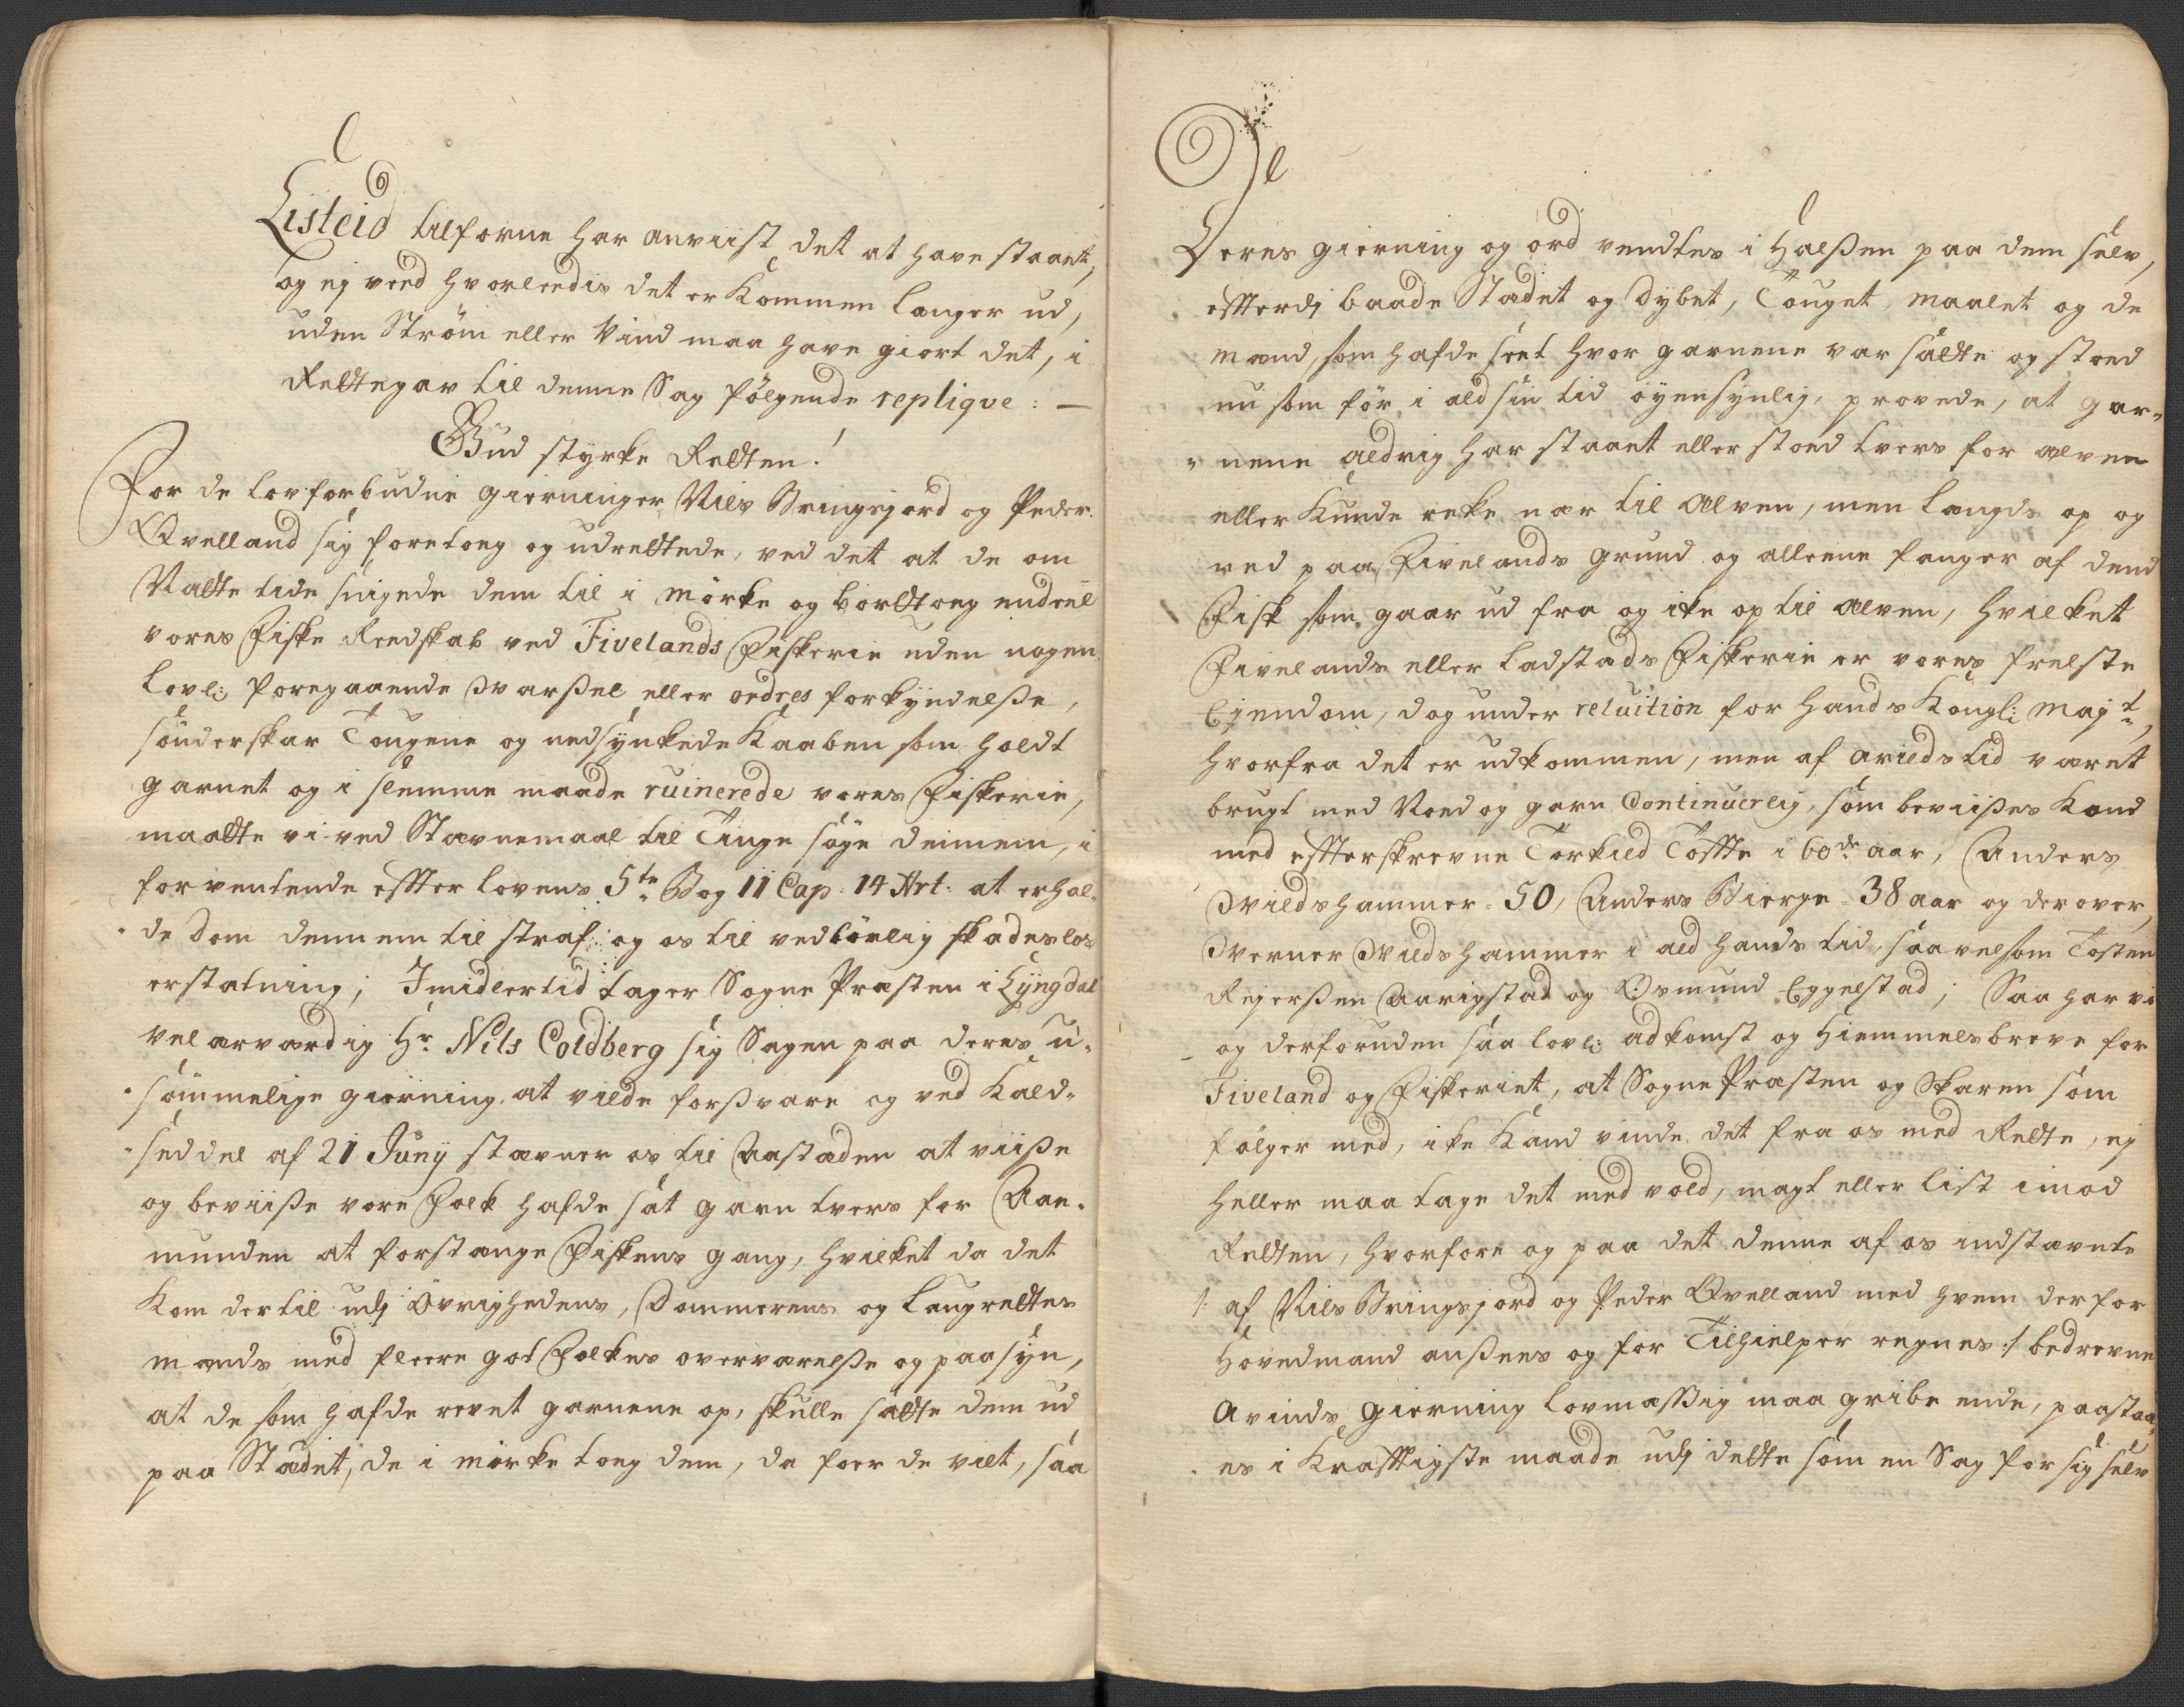 Listeid tilforne har anviist det at have staaet,
og ej veed hvorleedis det er kommen længer ud,
uden Ström eller Vind maa have giort det, i
Retteg av til denne Sag fölgende replique: —
Gud styrke Retten!
For de lovforbudne gierninger Nils Bringsjord og Peder
Qvelland sig foretoeg og udrettede, ved det at de om
Natte tide snigede dem til i mörke og borttoeg eendeel
vores Fiske Reedskab ved Fivelands Fiskerie uden nogen
lovl: foregaaende Varßel eller ordres forkyndelße,
sönderskar Tougene og nedsynkede Kaaben som holdt
garnet og i slemme maade ruinerede vores Fiskerie,
maatte vi ved Stævnemaal til Tinge söge dennem, i
forventende effter lovens 5te Bog 11 Cap: 14 Art: at erhol-
de dom dennem til straf: og os til vedbörlig skadeslos
erstatning; Imidlertid tager Sogne Præsten i Lyngdal
velærværdig Hr. Nils Coldberg sig Sagen paa deres u-
sömmelige gierning at vilde forßvare og ved Kald-
seddel af 21 Juny stævner os til Aastæden at viiße
og beviiße vore Folk hafde sat garn tvers for Aae-
munden at forstænge Fiskens gang, hvilket da det
kom dertil udj Övrighedens, Dommerens og Laugrettes
mænds med fleere got Folkes overværelße og paasyn,
at de som hafde revet garnene op, skulle sætte dem ud
paa Stædet, de i mörke toeg dem, da foer de vilt, saa
De
Deres gierning og ord vendtes i Halßen paa dem selv,
effterdj baade Stædet og dybet, Touget, maalet og de
mænd, som hafde seet hvor garnene var satte og stoed
nu som för i ald sin tid öyensynlig, provede, at gar-
nene aldrig har staaet eller stoed tvers for alven
eller kunde reke nær til alven, men langds op og
ned paa Fivelands grund og alleene fanger af dend
Fisk som gaar ud fra og ike op til alven, hvilket
Fivelands eller Ladstads Fiskerie er vores frelste
Ejendom, dog under reluition for Hands Kongl: Majt,
hvorfra det er udkommen, men af arilds tid været
brugt med Noed og garn Continuerlig, som beviißes kand
med effterskrevne Torkild Toffte i 60de aar, Anders
Vildshammer 50, Anders Bierge 38 aar og derover,
Verner Vildshammer i ald hands tid, saavelsom Tosten
Rejerßen Aarigstad og Osmund Eggelstad; Saa har vi
og derforuden saa lovl: adkomst og Hiemmelsbreve for
Fiveland og Fiskeriet, at Sogne Præsten og Skaren som
fölger med, ike kand vinde det fra os med Rette, ej
heller maa tage det med vold, magt eller list imod
Retten, hvorfore og paa det denne af os indstævnte
/: af Nils Bringsjord og Peder Qvelland med hvem der for
Hovedmand anßees og for Tilhielper regnes :/ bedrevne
Avinds gierning lovmæssig maa gribe ende, paastaa-
es i kræfftigste maade udj dette som en Sag for sig selv